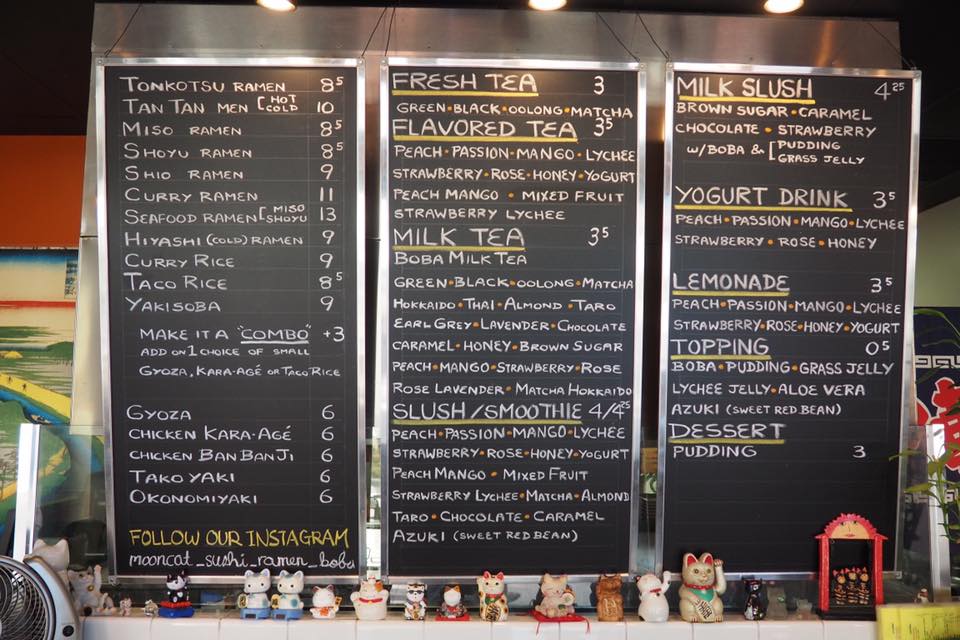 TONKOTSU RAMEN 8⁵
TAN TAN MEN [HOT COLD 10
MISO RAMEN 8⁵
SHOYU RAMEN 8⁵
SHIO RAMEN 9
CURRY RAMEN 11
SEAFOOD RAMEN [MISO SHOYU 13
HIYASHI (COLD) RAMEN 9
CURRY RICE 9
TACO RICE 8⁵
YAKISOBA 9
MAKE IT A "COMBO" +3
ADD ON 1 CHOICE OF SMALL
GYOZA, KARA-AGÉ OR TACO RICE
GYOZA 6
CHICKEN KARA-AGÉ 6
CHICKEN BAN BAN JI 6
TAKO YAKI 6
OKONOMIYAKI 6
FOLLOW OUR INSTAGRAM
mooncat_sushi_ramen_boba
FRESH TEA 3
GREEN•BLACK•OOLONG•MATCHA
FLAVORED TEA 3⁵
PEACH•PASSION•MANGO•LYCHEE
STRAWBERRY•ROSE•HONEY•YOGURT
PEACH MANGO • MIXED FRUIT
STRAWBERRY LYCHEE
MILK TEA 3⁵
BOBA MILK TEA
GREEN•BLACK•OOLONG•MATCHA
HOKKAIDO•THAI•ALMOND•TARO
EARL GREY•LAVENDER•CHOCOLATE
CARAMEL•HONEY•BROWN SUGAR
PEACH•MANGO•STRAWBERRY•ROSE
ROSE LAVENDER•MATCHA HOKKAIDO
SLUSH/SMOOTHIE 4/4²⁵
PEACH•PASSION•MANGO•LYCHEE
STRAWBERRY•ROSE•HONEY•YOGURT
PEACH MANGO • MIXED FRUIT
STRAWBERRY LYCHEE•MATCHA•ALMOND
TARO•CHOCOLATE•CARAMEL
AZUKI (SWEET RED BEAN)
MILK SLUSH 4²⁵
BROWN SUGAR•CARAMEL
CHOCOLATE • STRAWBERRY
W/BOBA & [PUDDING
GRASS JELLY
YOGURT DRINK 3⁵
PEACH•PASSION•MANGO•LYCHEE
STRAWBERRY•ROSE•HONEY
LEMONADE 3⁵
PEACH•PASSION•MANGO•LYCHEE
STRAWBERRY•ROSE•HONEY•YOGURT
TOPPING 0⁵
BOBA•PUDDING•GRASS JELLY
LYCHEE JELLY•ALOE VERA
AZUKI (SWEET RED BEAN)
DESSERT
PUDDING 3